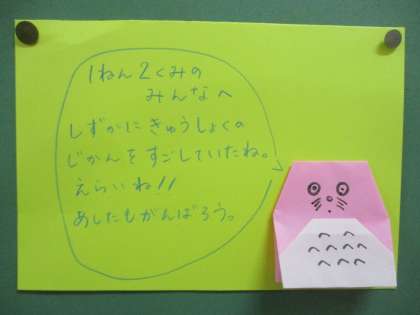 1ねん2くみの
みんなへ
しずかにきゅうしょくの
じかんをすごしていたね。
えらいね!!
あしたもがんばろう。